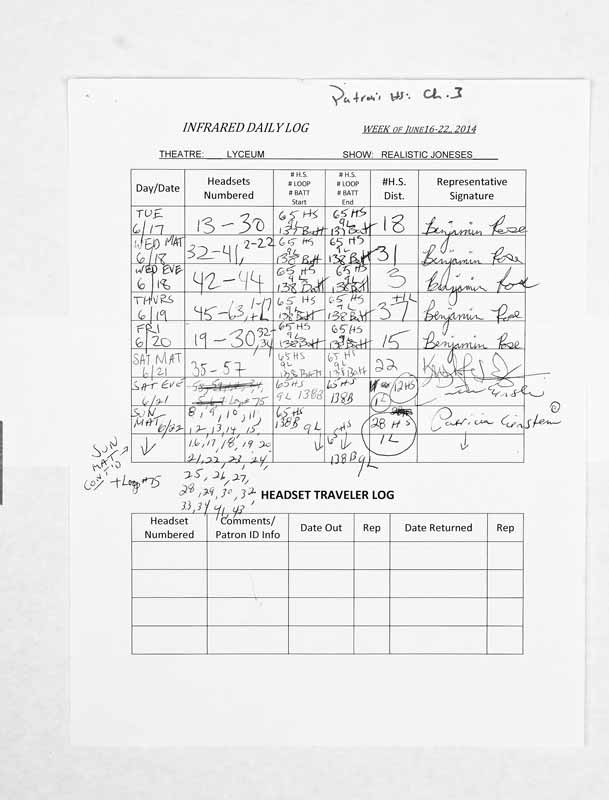 Patron's HS: Ch. 3
INFRARED DAILY LOG WEEK OF JUNE 16-22, 2014
THEATRE: LYCEUM SHOW: REALISTIC JONESES
Day/Date Headsets Numbered # H.S. # LOOP # BATT Start # H.S. # LOOP # BATT End #H.S. Dist. Representative Signature
TUE 6/17 13-30 65 HS 9L 138 Batt 65 HS 9L 138 Batt 18 Benjamin Rose
WED MAT 6/18 32-41, 2-22 65 HS 9L 138 Batt 65 HS 9L 138 Batt 31 Benjamin Rose
WED EVE 6/18 42-44 65 HS 9L 138 Batt 65 HS 9L 138 Batt 3 Benjamin Rose
THURS 6/19 45-63, 65 HS 9L 138 Batt 65 HS 9L 138 Batt 37 +1L Benjamin Rose
FRI 6/20 19-30, 32-34 65 HS 9L 138 Batt 65 HS 9L 138 Batt 15 Benjamin Rose
SAT MAT 6/21 35-57 65 HS 9L 138 Batt 65 HS 9L 138 Batt 22
SAT EVE 6/21 Loop# 75 65 HS 9L 138B 65 HS 138B 12 HS 1L
SUN MAT 6/22 8, 9, 10, 11, 65 HS 138B 9L 28 HS 1L Patricia
12, 13, 14, 15,
16, 17, 18, 19, 20 65 HS
21, 22, 23, 24, 138B 9L
SUN MAT CONT'D + Loop #75 25, 26, 27,
28, 29, 30, 32
33, 34, 41, 43
HEADSET TRAVELER LOG
Headset Numbered Comments/ Patron ID Info Date Out Rep Date Returned Rep